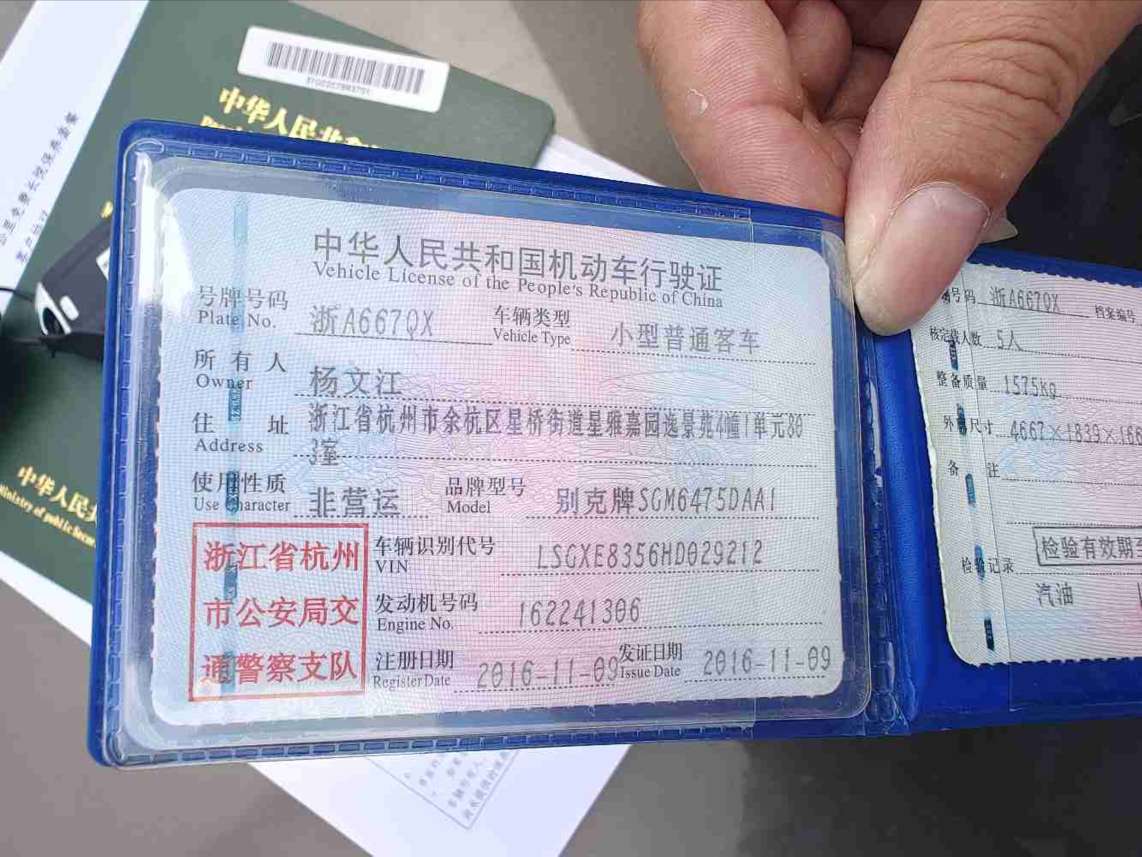 中华人民共
中华人民共和国机动车行驶证
Vehicle License of the People's Republic of China
号牌号码 浙A667QX 车辆类型 小型普通客车
Plate No. Vehicle Type
所有人 杨文江
Owner
住址 浙江省杭州市余杭区星桥街道星雅嘉园逸景苑4幢1单元80
Address 3室
使用性质 非营运 品牌型号 别克牌SGM6475DAA1
Use Character Model
浙江省杭州
市公安局交
通警察支队
车辆识别代号 LSGXE8356HD029212
VIN
发动机号码 162241306
Engine No.
注册日期 2016-11-09 发证日期 2016-11-09
Register Date Issue Date
号码 浙A667QX 档案编号
核定载人数 5人
整备质量 1575kg
外廓尺寸 4667×1839×166
备注
检验有效期至
检验记录
汽油
中华人民
Ministry of public Secur